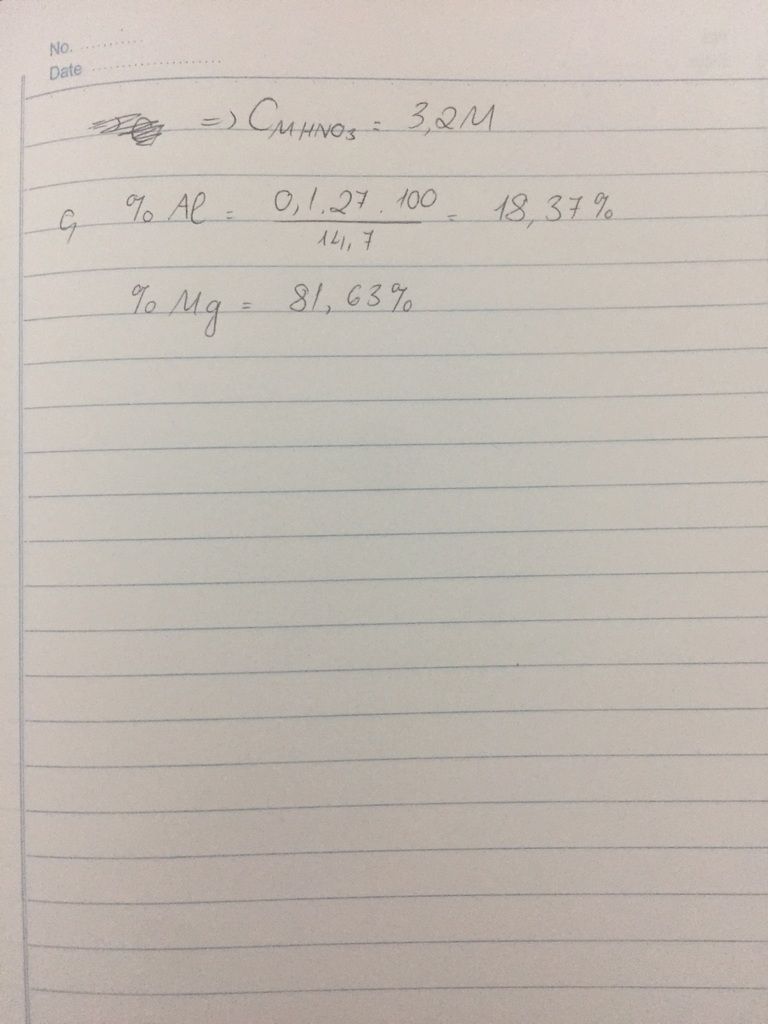 No. ............
Date ........................
=> CM HNO3 = 3,2M
c, % Al = 0,1.27.100 / 14,7 = 18,37%
% Mg = 81,63%